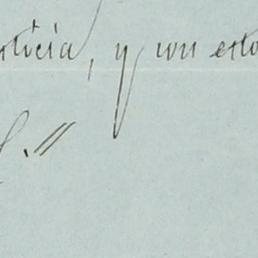 sticia, y con esto